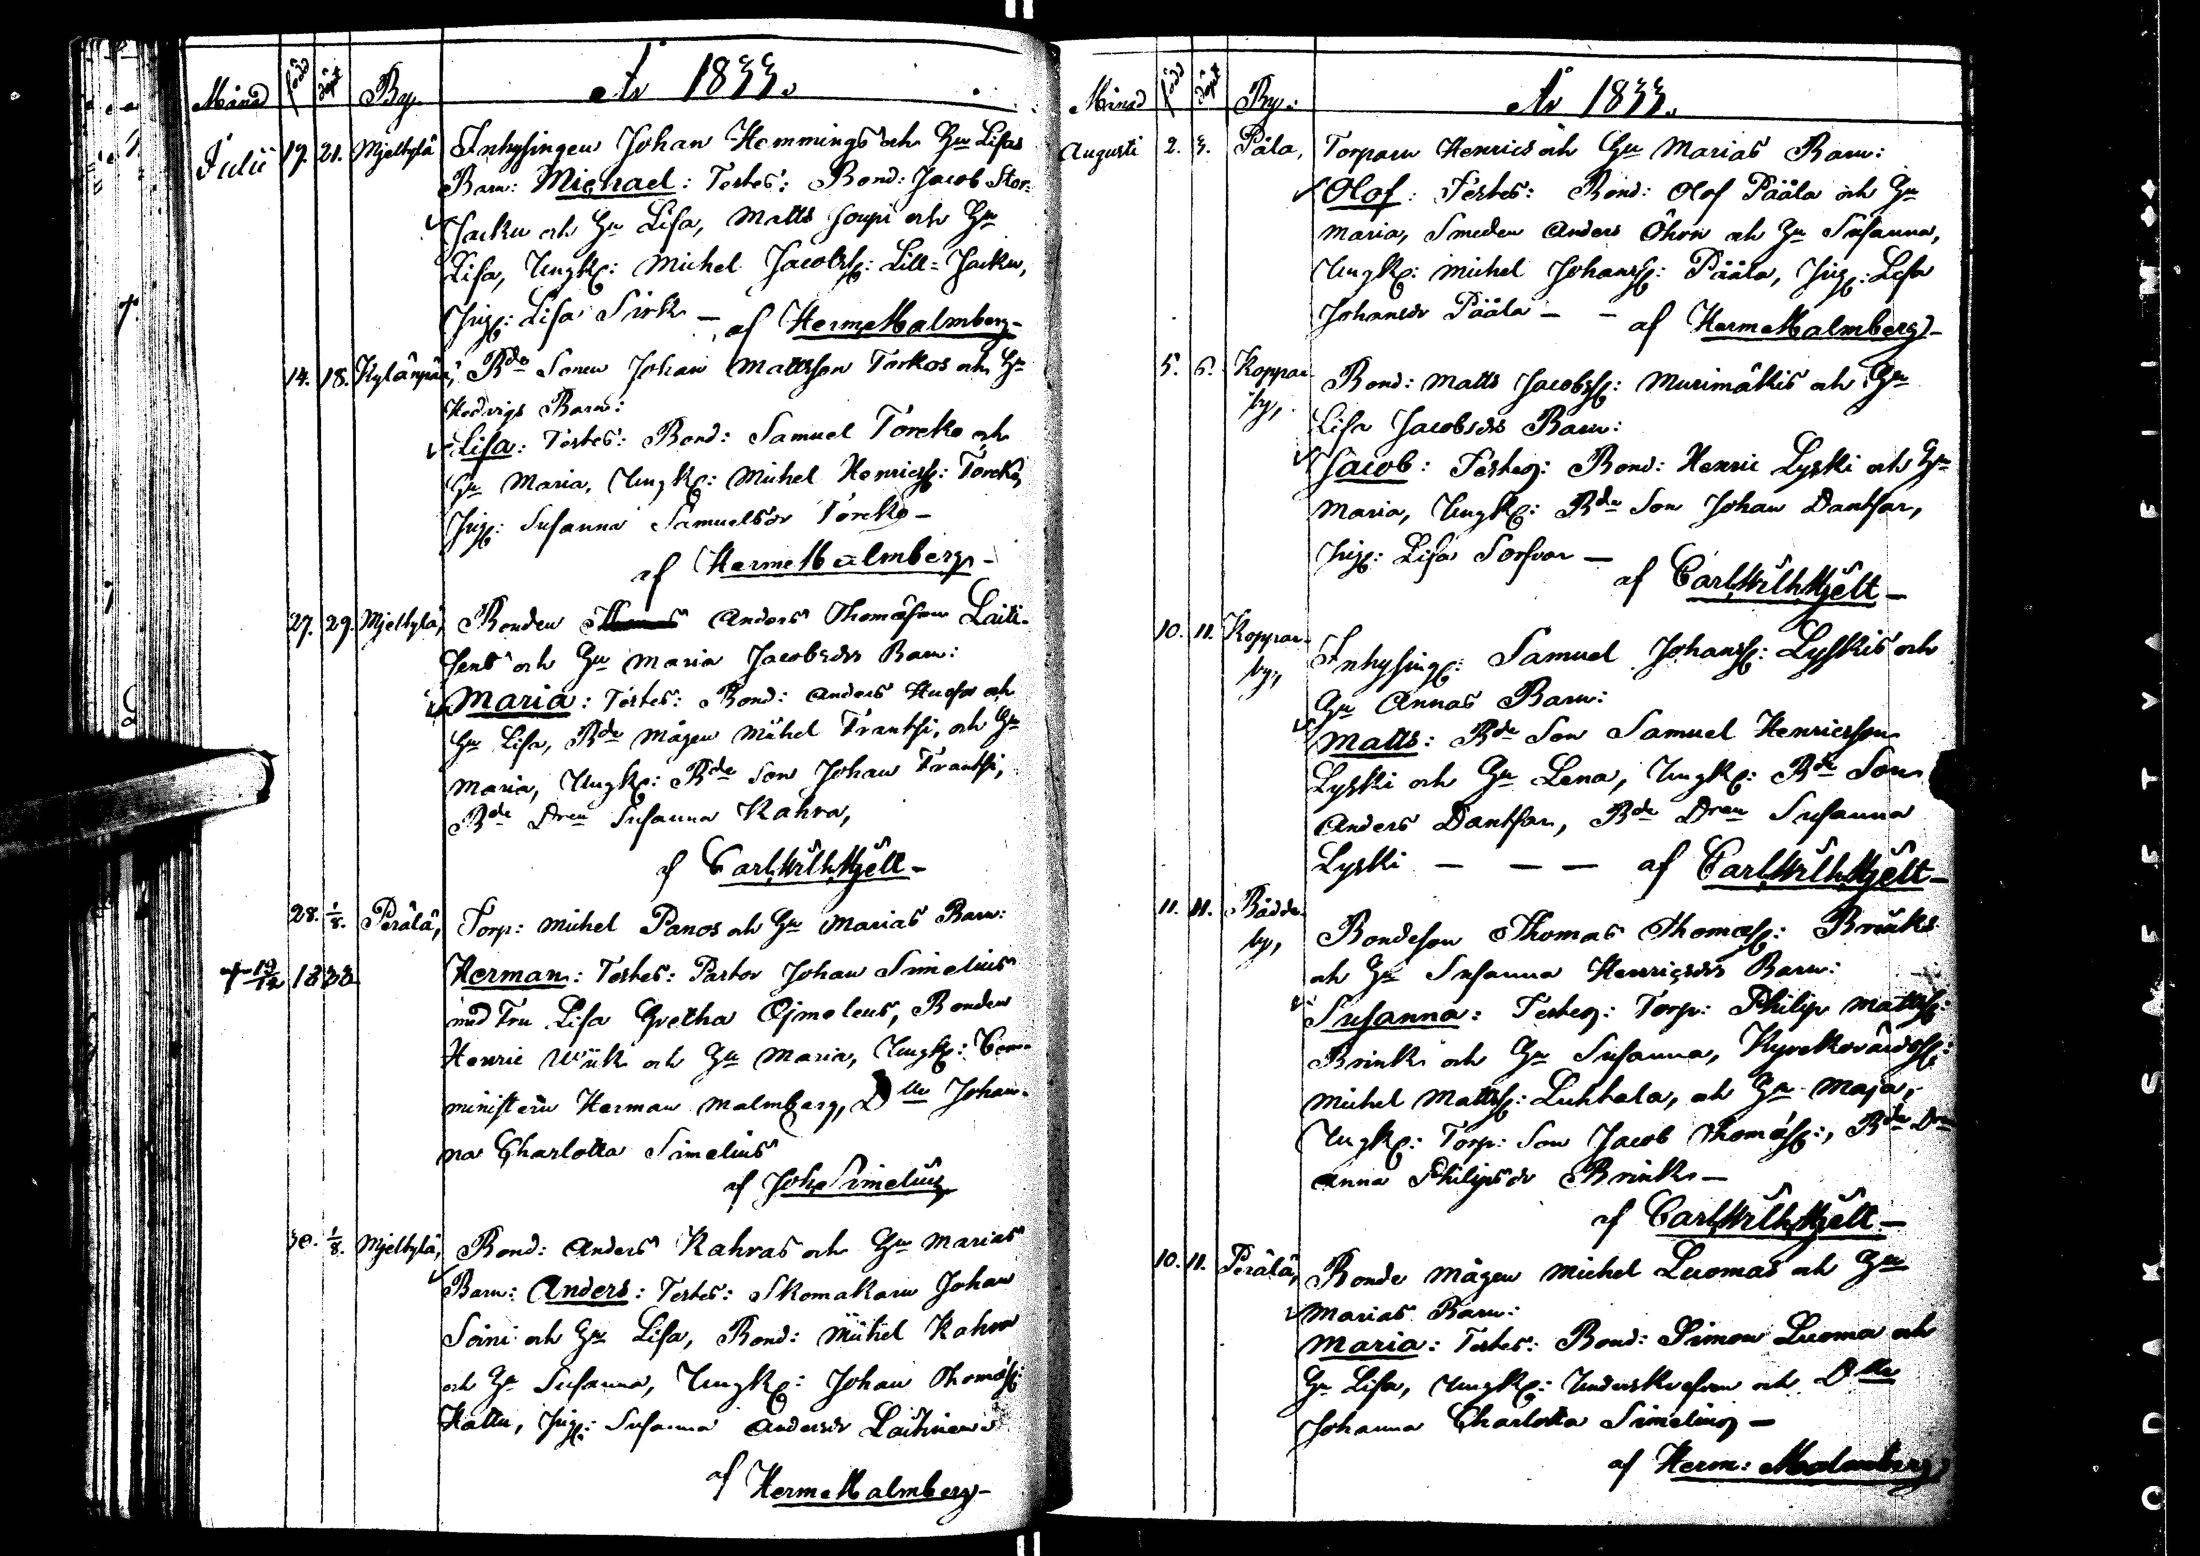 Månad född döpt By År 1833.
Julii 19. 21. Mjelbylä Inhysingen Johan Hemmings och Hu Lisas
Barn: Michael: Testes: Bond: Jacob Stor-
Jacku och Hu Lisa, Matts Soupi och Hu
Lisa, Ungk: Michel Jacobss: Lill-Jacku,
Pig: Lisa Sirk —
af Herm Malmberg —
14. 18. Kylänpää, Bde Sonen Johan Mattsson Torkos och Hu
Hedvigs Barn:
Lisa: Testes: Bond: Samuel Törckö och
Hu Maria, Ungk: Michel Henricss: Törckö,
Pig: Susanna Samuelsdr Törckö —
af Herm Malmberg —
27. 29. Mjelbylä, Bonden Anders Thomasson Laiti-
sens och Hu Maria Jacobsdrs Barn:
Maria: Testes: Bond: Anders och
Hu Lisa, Bde Mågen Michel Frantsi, och Hu
Maria, Ungk: Bde Son Johan Frantsi,
Bde Dren Susanna Kahra,
af Carl Wilh Hjelt —
28. 1/8. Perälä, Torp: Michel Panos och Hu Marias Barn:
+ 19/12 1833 Herman: Testes: Pastor Johan Simelius
med Fru Lisa Gretha Ojmeleus, Bonden
Henric Wiik och Hu Maria, Ungk: Com-
ministern Herman Malmberg, Dlle Johan-
na Charlotta Simelius
af Joh Simelius
30. 1/8. Mjelbylä, Bond: Anders Kahras och Hu Marias
Barn: Anders: Testes: Skomakarn Johan
Soini och Hu Lisa, Bond: Michel Kahra
och Hu Susanna, Ungk: Johan Thomass:
Hattu, Pig: Susanna Andersdr Laitinen
af Herm Malmberg —
Månad född döpt By: År 1833.
Augusti 2. 3. Påla, Torparn Henrics och Hu Marias Barn:
Olof: Testes: Bond: Olof Pääla och Hu
Maria, Smeden Anders Öhrn och Hu Susanna,
Ungk: Michel Johanss: Pääla, Pig: Lisa
Johansdr Pääla — — af Herm Malmberg —
5. 6. Koppar-
by, Bond: Matts Jacobss: Murimäkis och Hu
Lisa Jacobsdrs Barn:
Jacob: Testes: Bond: Henric Lyski och Hu
Maria, Ungk: Bde Son Johan Dantsar,
Pig: Lisa Sorfvar —
af Carl Wilh Hjelt —
10. 11. Koppar-
by, Inhysing: Samuel Johanss: Lyskis och
Hu Annas Barn:
Matts: Bde Son Samuel Henricsson
Lyski och Hu Lena, Ungk: Bde Son
Anders Dantsar, Bde Dren Susanna
Lyski — — — af Carl Wilh Hjelt —
11. 11. Bådda-
by, Bondeson Thomas Thomass: Brinks
och Hu Susanna Henricsdrs Barn:
Susanna: Testes: Torp: Philip Mattss:
Brink och Hu Susanna, Kyrkovärdss:
Michel Mattss: Luhtala, och Hu Maja,
Ungk: Torp: Son Jacob Thomass:, Bde Dren
Anna Philipsdr Brink —
af Carl Wilh Hjelt —
10. 11. Perälä, Bonde Mågen Michel Luomas och Hu
Marias Barn:
Maria: Testes: Bond: Simon Luoma och
Hu Lisa, Ungk: Underskrefven och Dlle
Johanna Charlotta Simelius —
af Herm: Malmberg
KODAK SAFETY FILM